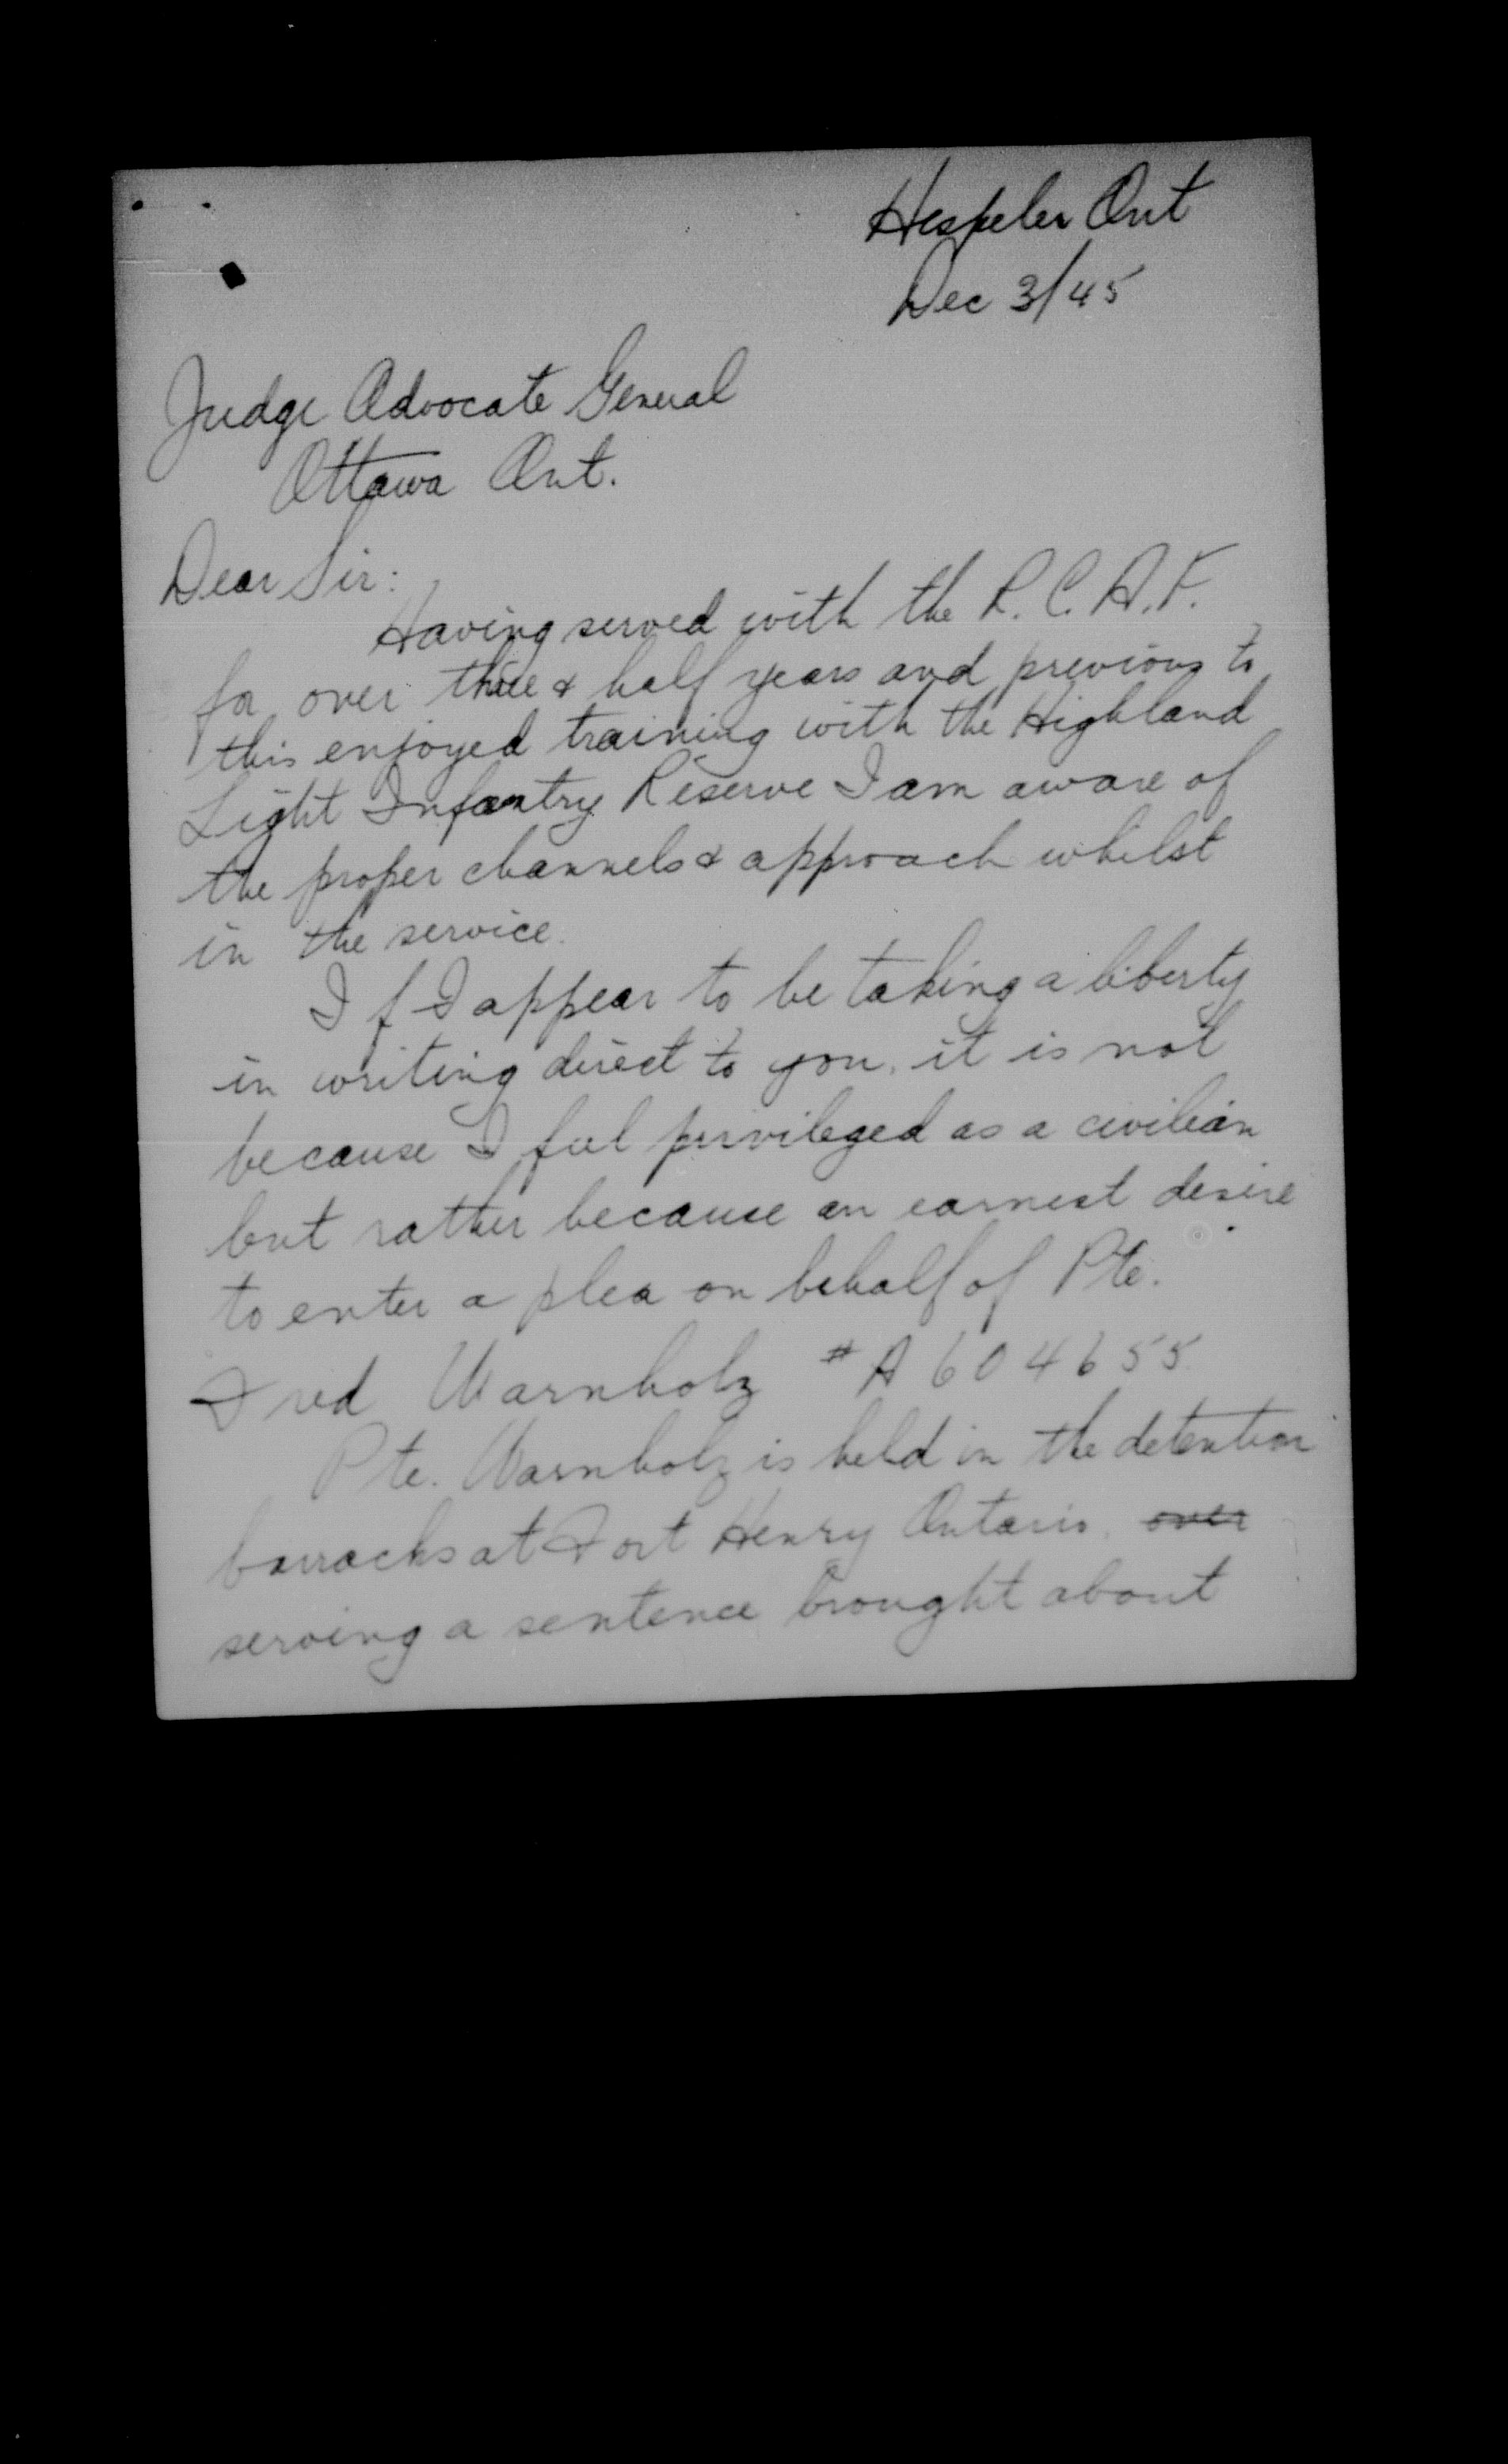 Hespeler Ont
Dec 3/45
Judge Advocate General
Ottawa Ont.
Dear Sir:
Having served with the R.C.A.F.
for over three & half years and previous to
this enjoyed training with the Highland
Light Infantry Reserve I am aware of
the proper channels & approach whilst
in the service.
If I appear to be taking a liberty
in writing direct to you, it is not
because I feel privileged as a civilian
but rather because an earnest desire
to enter a plea on behalf of Pte.
Fred Warnholz # A604655
Pte. Warnholz is held in the detention
barracks at Fort Henry Ontario. over
serving a sentence brought about